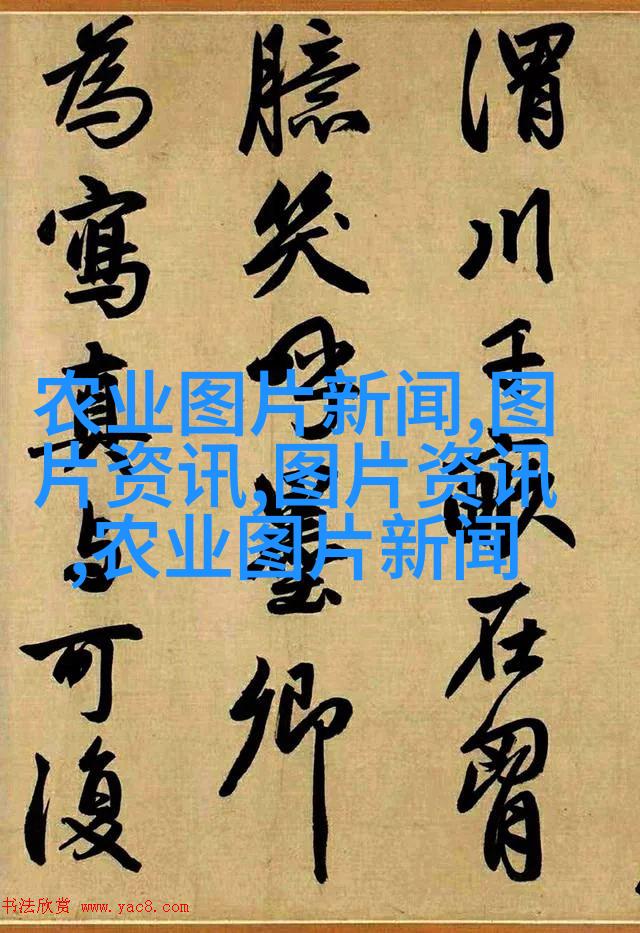 渭川千畝在胷
臆笑呼墨卿
為寫真与可復
农业图片新闻,图
片资讯,图片资讯
,农业图片新闻
书法欣赏 www.yac8.com